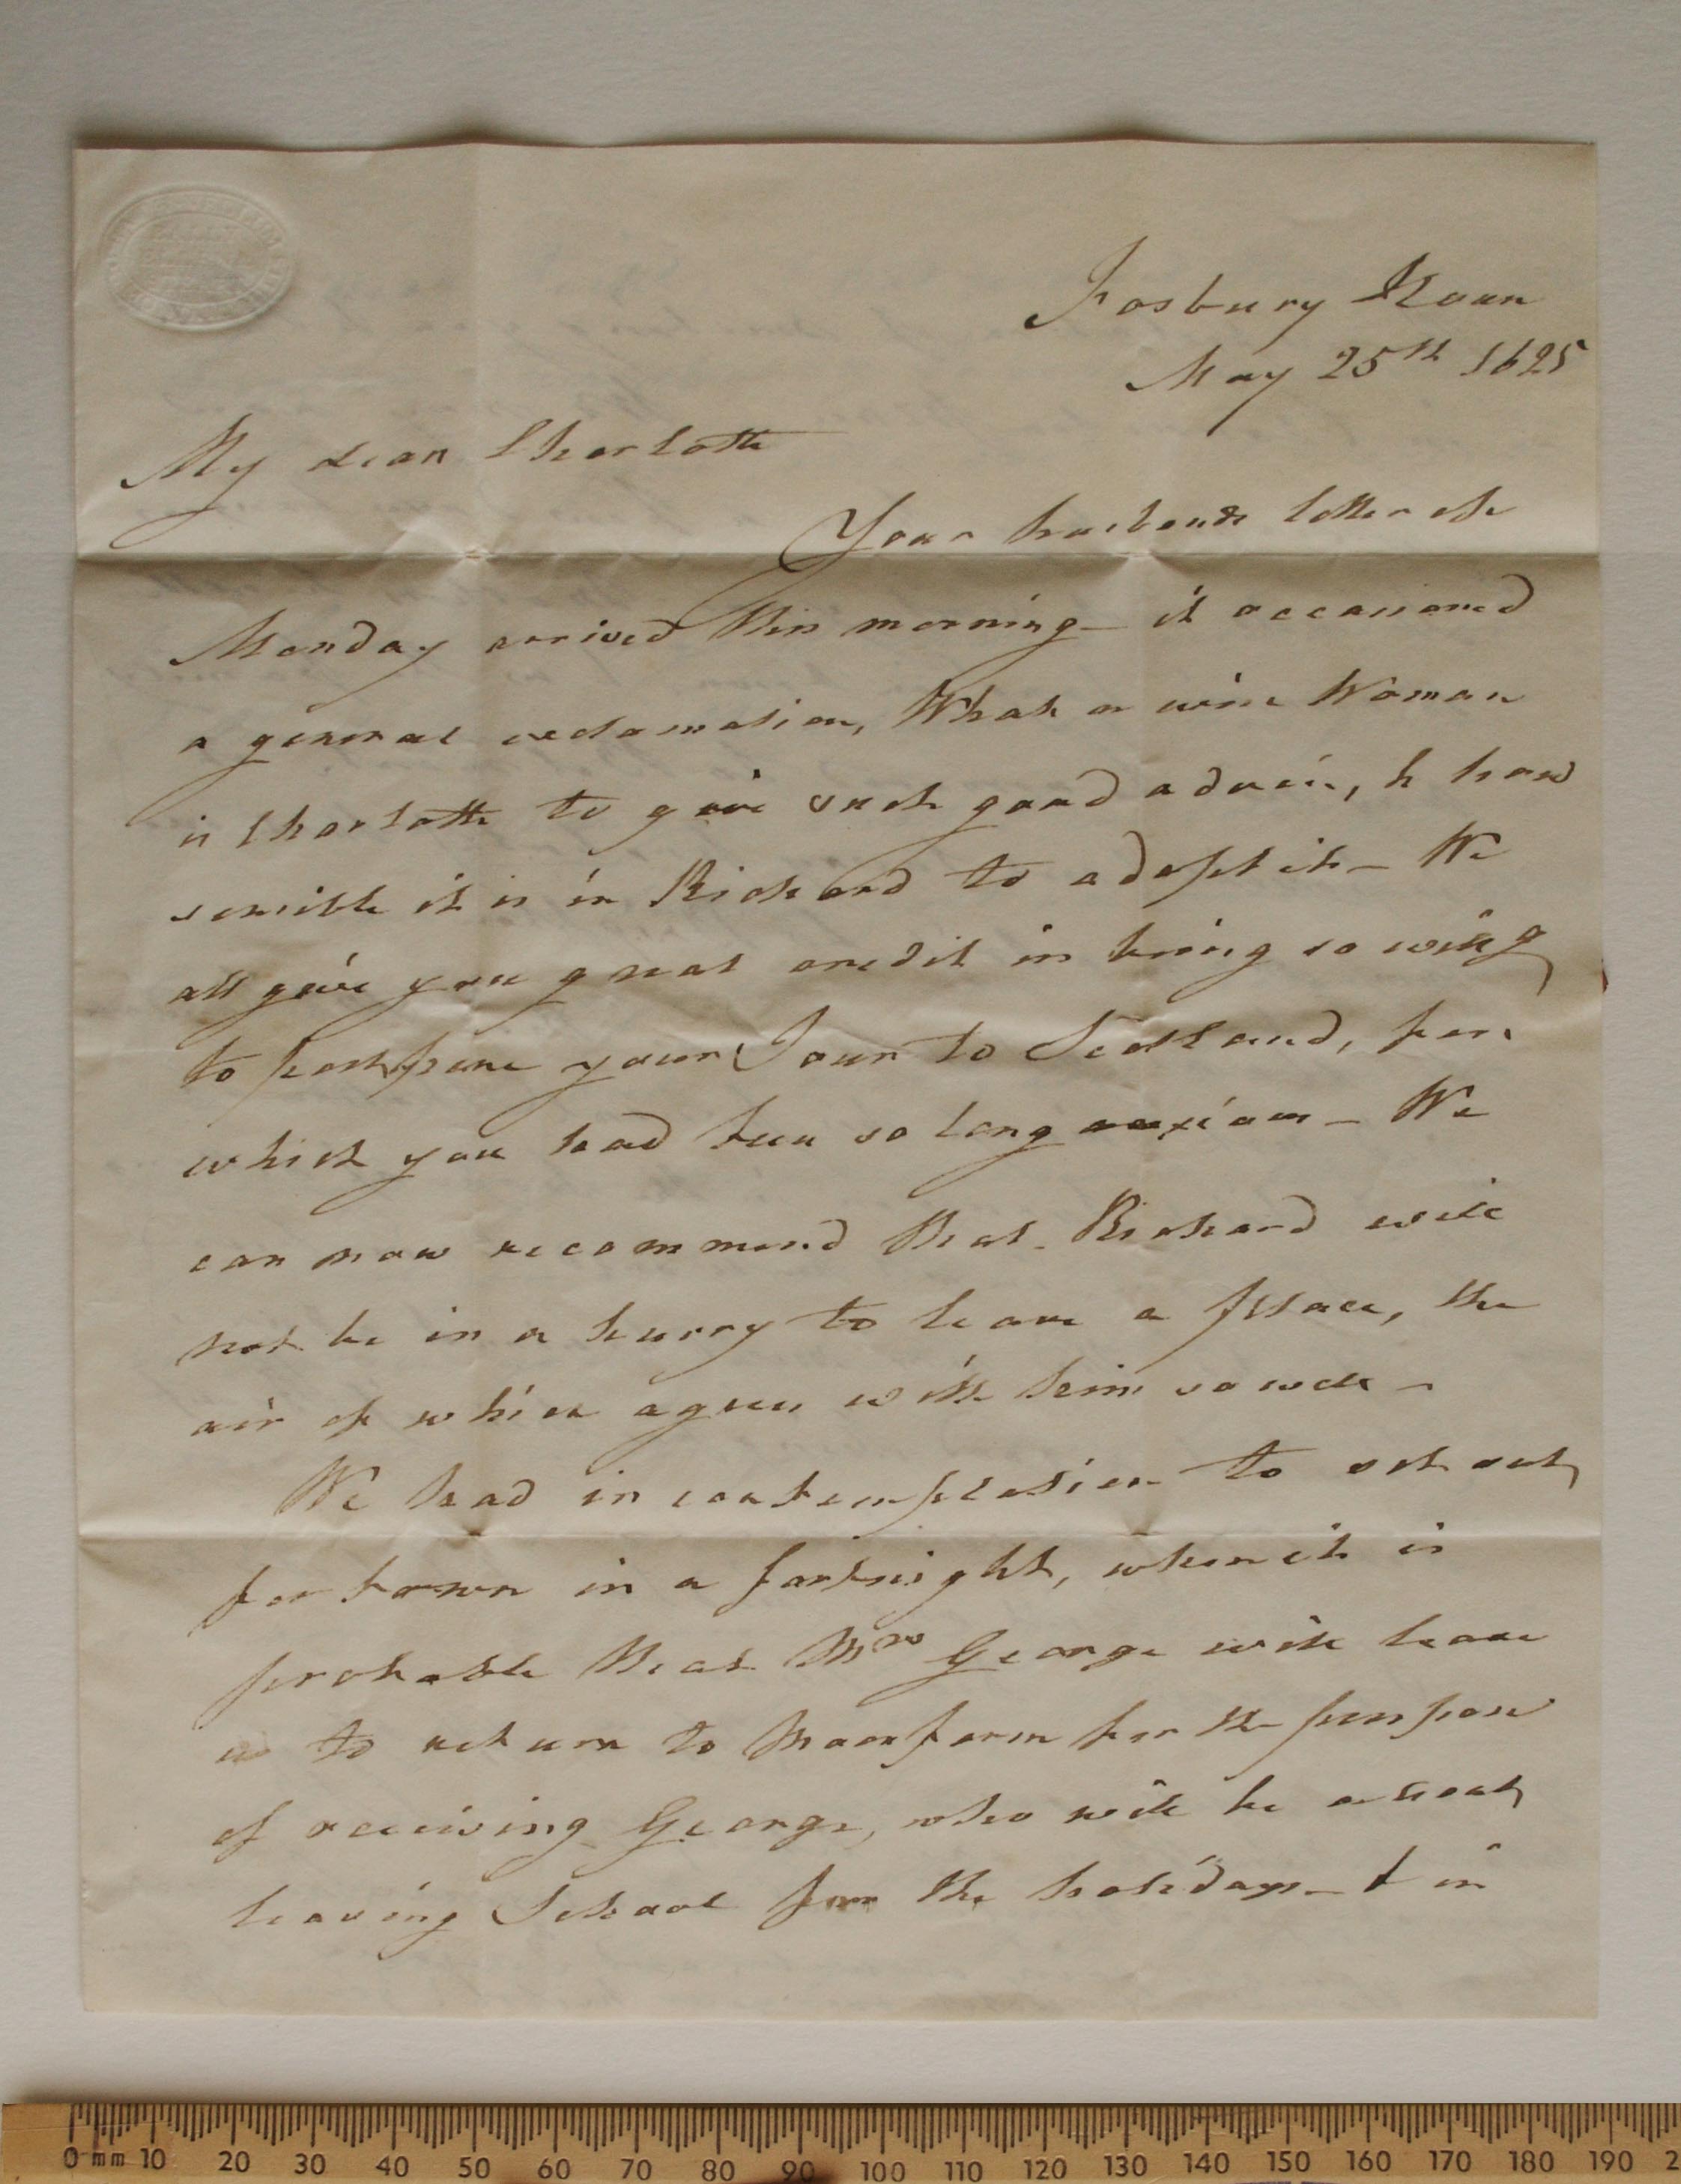 Fosbury House
May 25th 1825
My dear Charlotte
Your husbands letter of
Monday arrived this morning - it occasioned
a general exclamation, What a wise Woman
is Charlotte to give such good advice, & how
sensible it is in Richard to adopt it - We
all give you great credit in being so willing
to postpone your Tour to Scotland, for
which you had been so long anxious - We
can now recommend that Richard will
not be in a hurry to leave a place, the
air of which agrees with him so well -
We had in contemplation to set out
for town in a fortnight, when it is
probable that Mrs George will leave
us to return to for the purpose
of receiving George, who will be about
leaving School for the holidays - & in
0 mm 10 20 30 40 50 60 70 80 90 100 110 120 130 140 150 160 170 180 190 2